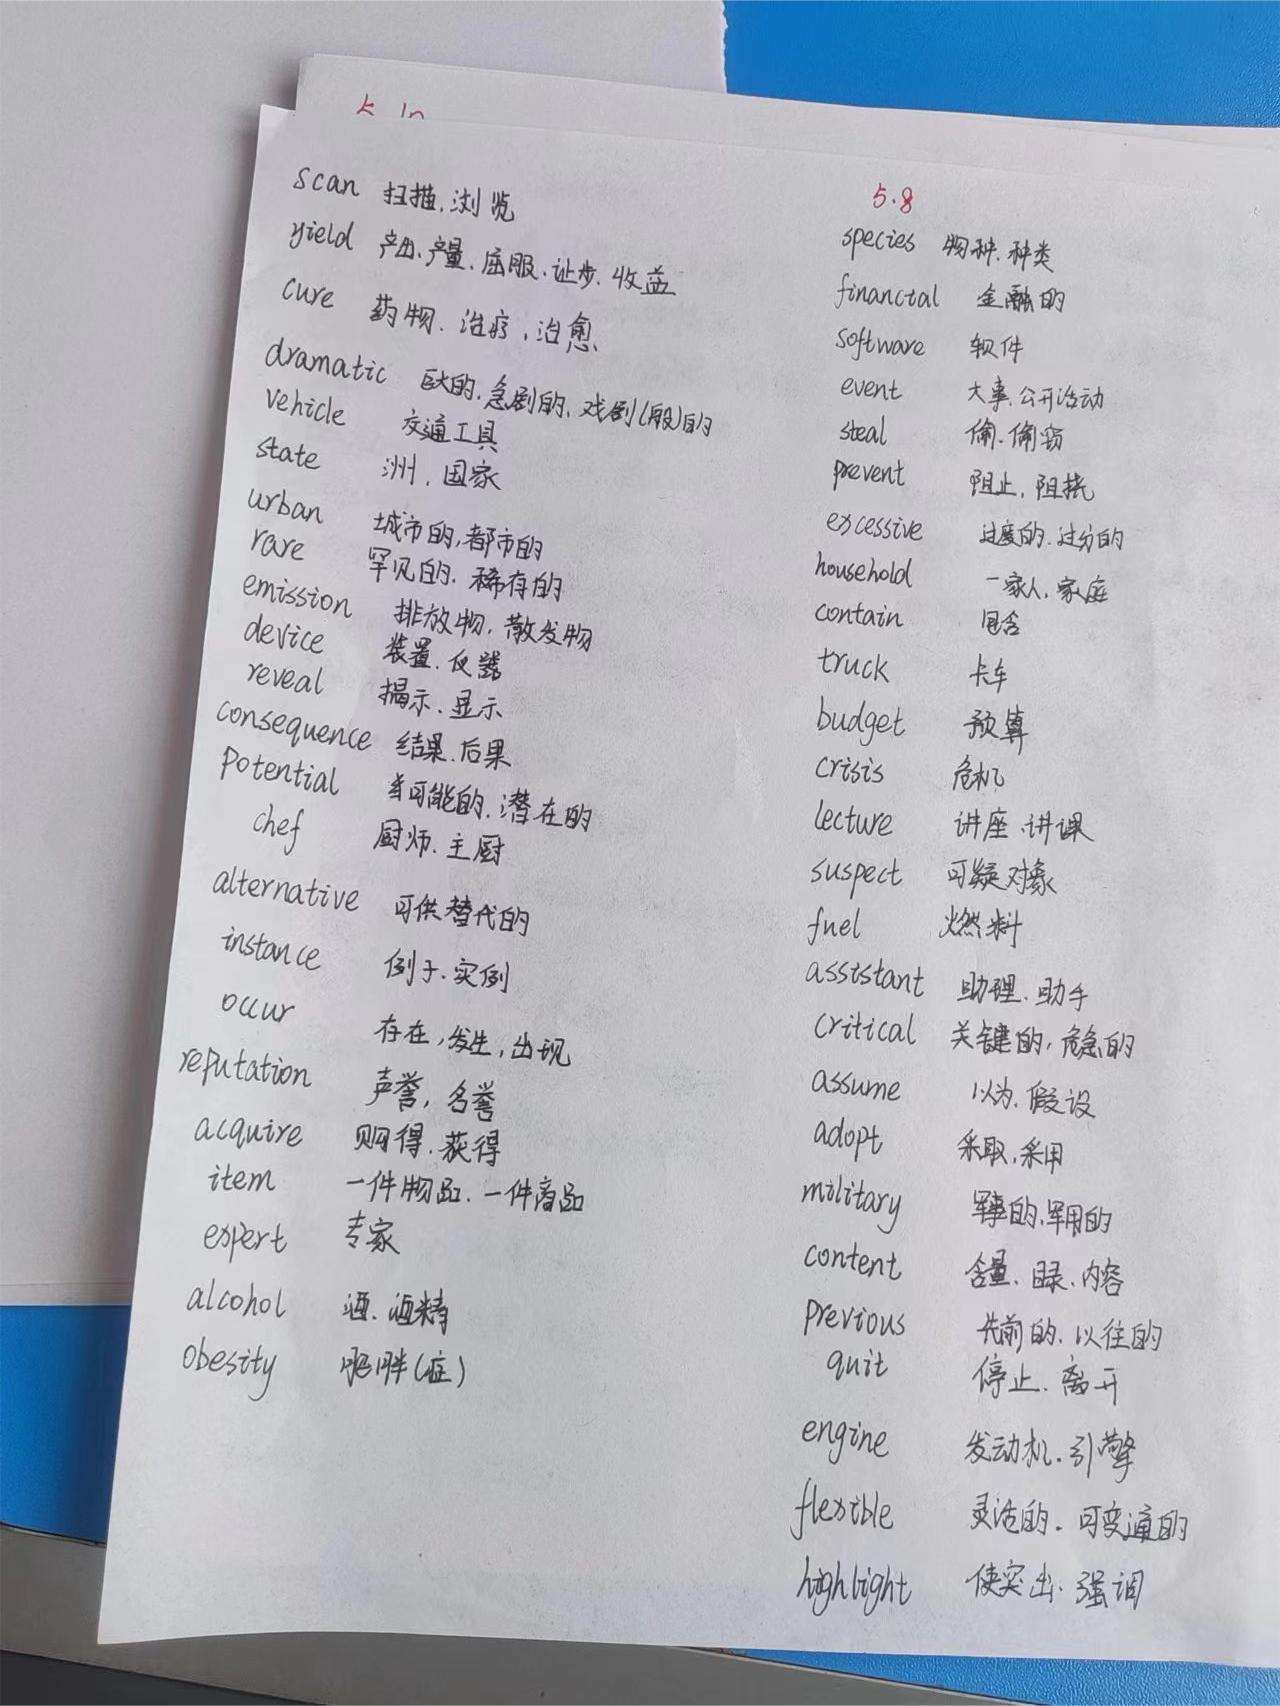 scan 扫描、浏览
yield 产出、产量、屈服、让步、收益
cure 药物、治疗，治愈、
dramatic 巨大的、急剧的、戏剧(般)的
vehicle 交通工具
state 洲、国家
urban 城市的，都市的
rare 罕见的、稀存的
emission 排放物，散发物
device 装置、仪器
reveal 揭示、显示
consequence 结果、后果
potential 可能的、潜在的
chef 厨师、主厨
alternative 可供替代的
instance 例子、实例
occur 存在，发生，出现
reputation 声誉，名誉
acquire 购得、获得
item 一件物品、一件商品
expert 专家
alcohol 酒、酒精
obesity 肥胖(症)
5.8
species 物种、种类
financial 金融的
software 软件
event 大事、公开活动
steal 偷、偷窃
prevent 阻止，阻挠
excessive 过度的、过分的
household 一家人、家庭
contain 包含
truck 卡车
budget 预算
crisis 危机
lecture 讲座、讲课
suspect 可疑对象
fuel 燃料
assistant 助理、助手
critical 关键的，危急的
assume 以为、假设
adopt 采取，采用
military 军事的，军用的
content 含量、目录、内容
previous 先前的、以往的
quit 停止、离开
engine 发动机、引擎
flexible 灵活的、可变通的
highlight 使突出、强调